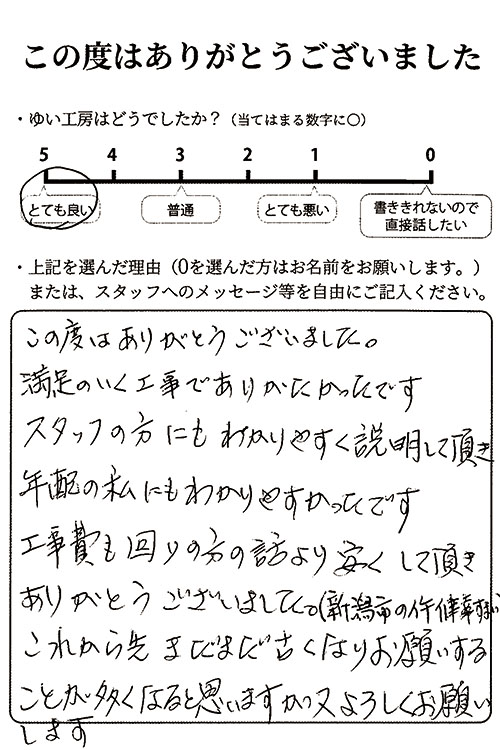 この度はありがとうございました
・ゆい工房はどうでしたか？（当てはまる数字に○）
5 4 3 2 1 0
とても良い 普通 とても悪い 書ききれないので
直接話したい
・上記を選んだ理由（0を選んだ方はお名前をお願いします。）
または、スタッフへのメッセージ等を自由にご記入ください。
この度はありがとうございました。
満足のいく工事でありがたかったです
スタッフの方にもわかりやすく説明して頂き
年配の私にもわかりやすかったです
工事費も回りの方の話より安くして頂き
ありがとうございました。(新潟市の
これから先まだまだ古くなりお願いする
ことが多くなると思いますが又よろしくお願い
します